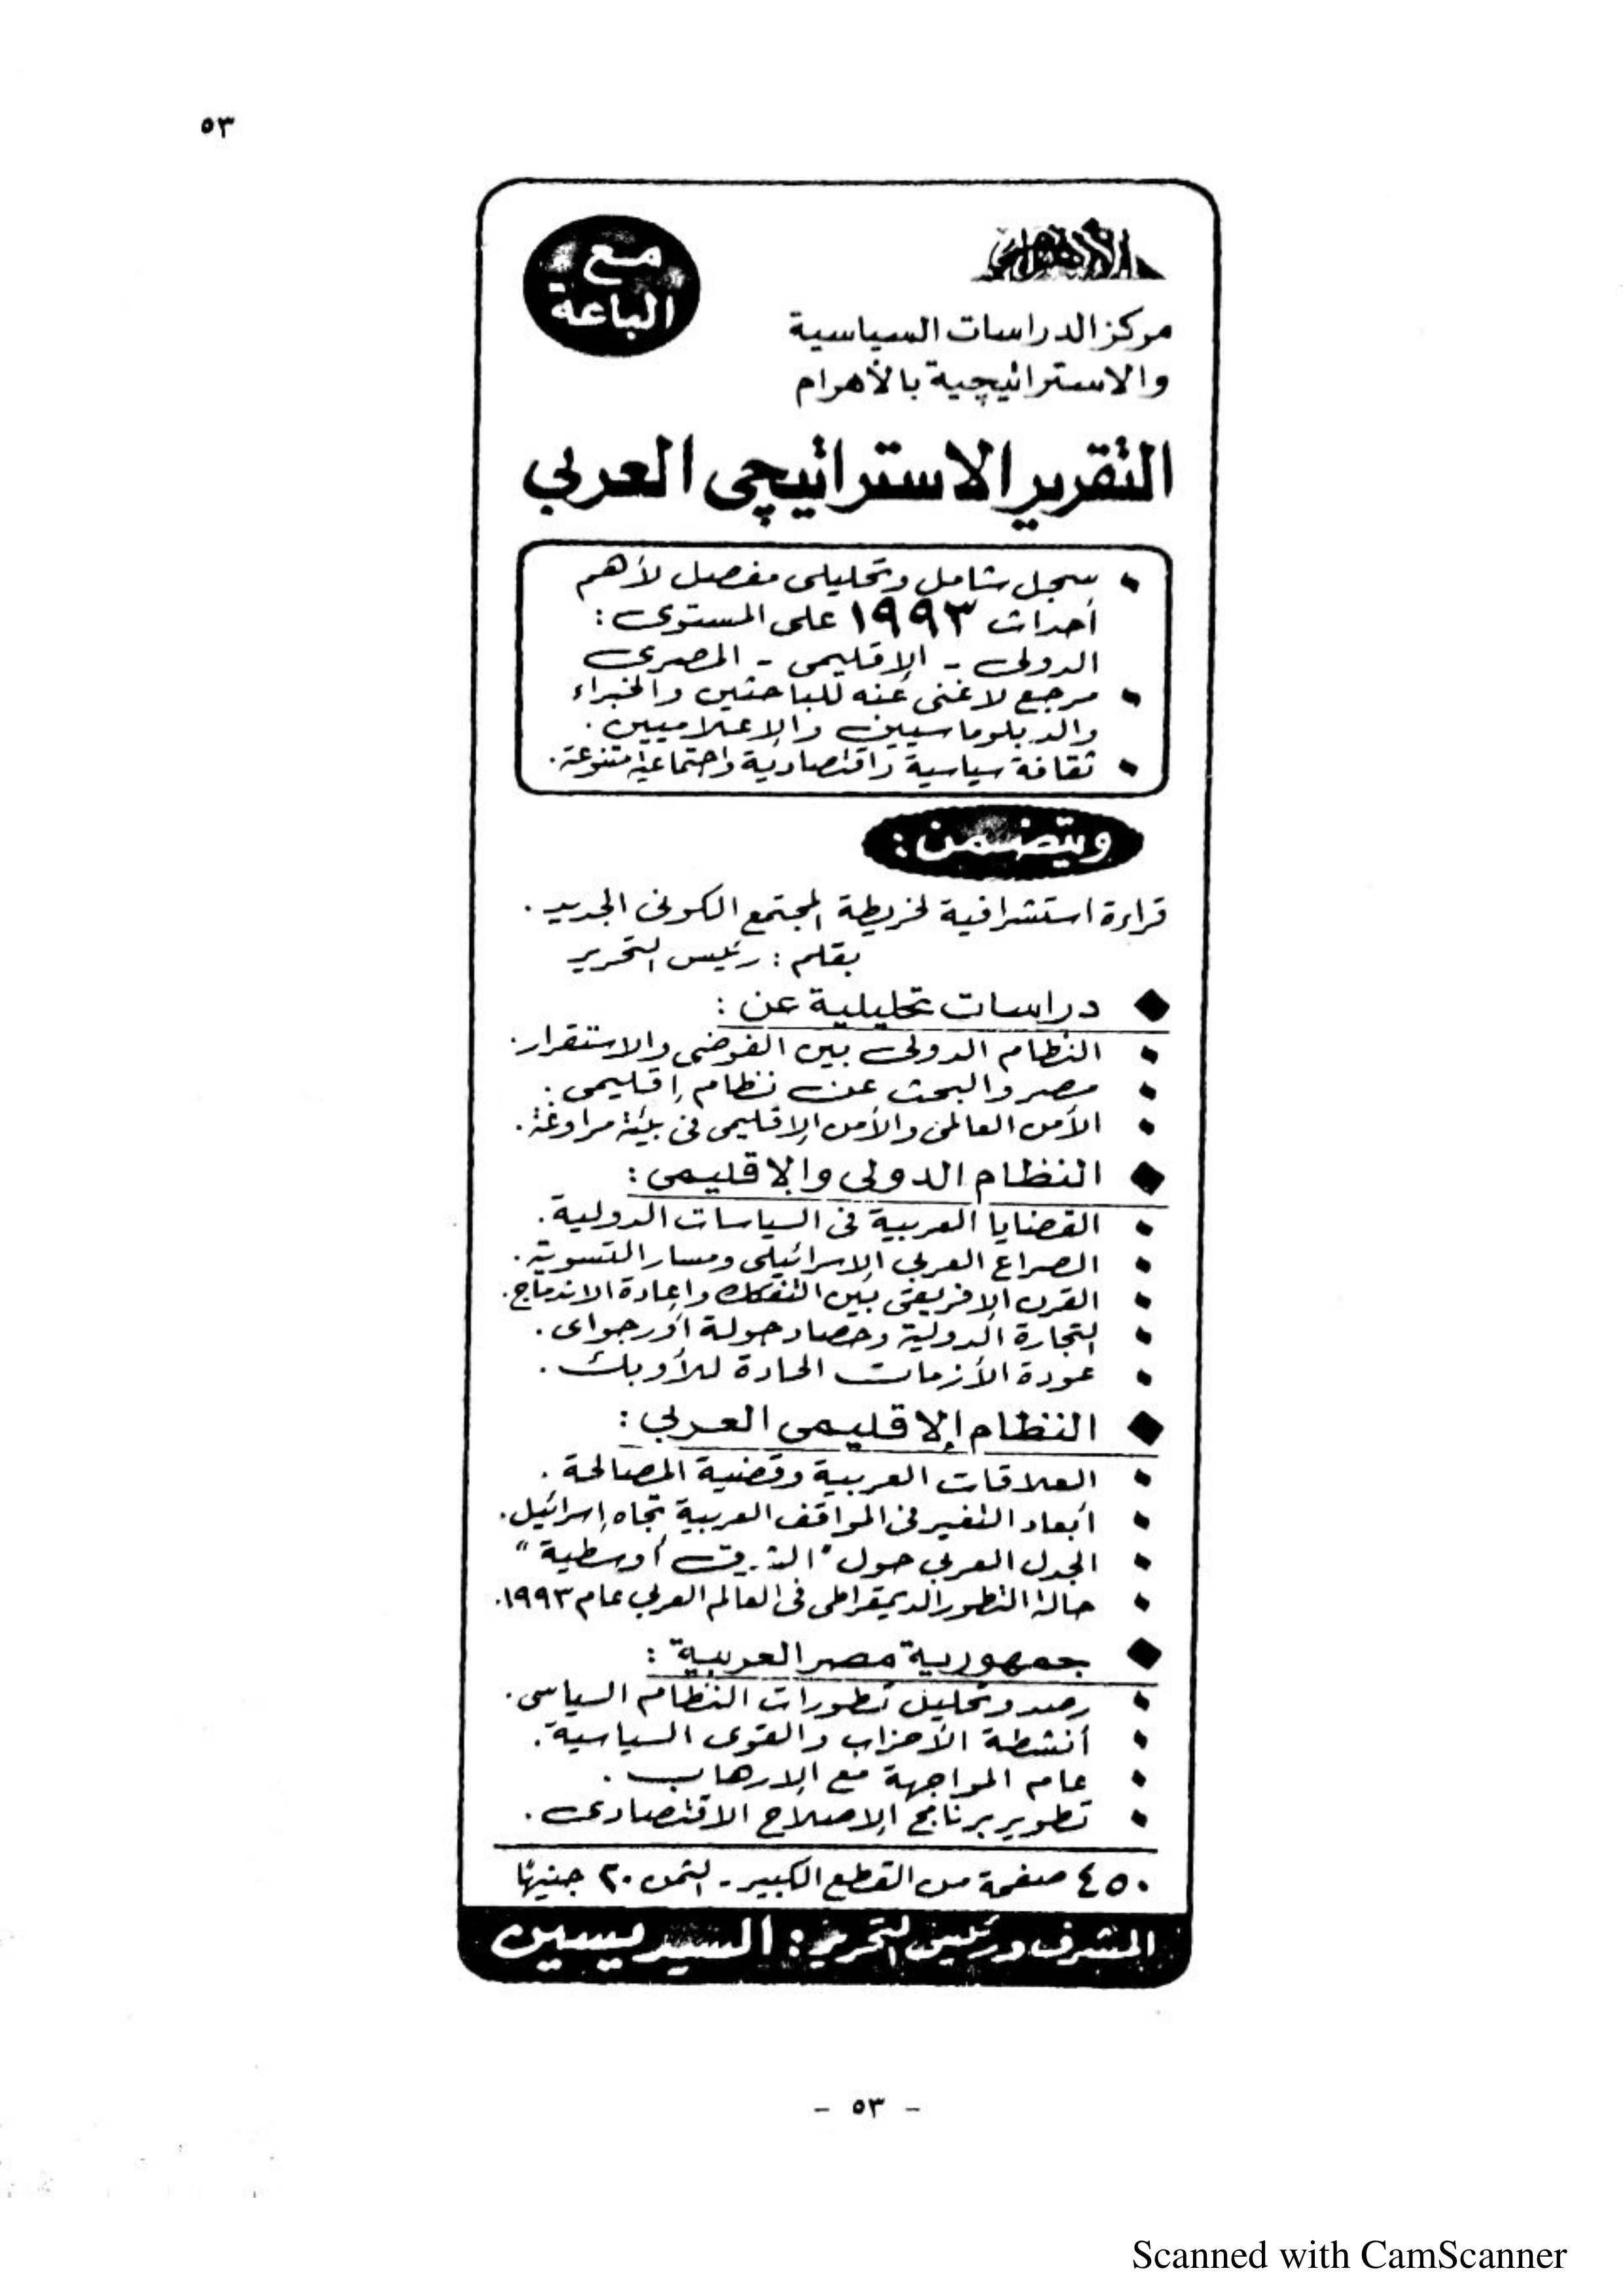 ٥٣
الأهرام
مع
الباعة
مركز الدراسات السياسية
والاستراتيچية بالأهرام
التقرير الاستراتيچى العربي
• سجل شامل وتحليلى مفصل لأهم
أحداث ١٩٩٣ على المستوى :
الدولى - الإقليمى - المصرى
• مرجع لاغنى عنه للباحثين والخبراء
والدبلوماسيين والإعلاميين .
• ثقافة سياسية واقتصادية واجتماعية متنوعة .
ويتضمن :
قراءة استشرافية لخريطة المجتمع الكونى الجديد .
بقلم : رئيس التحرير
◆ دراسات تحليلية عن :
• النظام الدولى بين الفوضى والاستقرار .
• مصر والبحث عن نظام إقليمى .
• الأمن العالمى والأمن الإقليمى فى بيئة مراوغة .
◆ النظام الدولى والإقليمى :
• القضايا العربية فى السياسات الدولية .
• الصراع العربى الإسرائيلى ومسار التسوية .
• القرن الإفريقى بين التفكك وإعادة الاندماج .
• التجارة الدولية وحصاد جولة أورجواى .
• عودة الأزمات الحادة للأوبك .
◆ النظام الإقليمى العربي :
• العلاقات العربية وقضية المصالحة .
• أبعاد التغير فى المواقف العربية تجاه إسرائيل .
• الجدل العربي حول "الشرق أوسطية"
• حالة التطور الديمقراطى فى العالم العربي عام ١٩٩٣ .
◆ جمهورية مصر العربية :
• رصد وتحليل تطورات النظام السياسى .
• أنشطة الأحزاب والقوى السياسية .
• عام المواجهة مع الإرهاب .
• تطوير برنامج الإصلاح الاقتصادى .
٤٥٠ صفحة من القطع الكبير - الثمن ٢٠ جنيهًا
المشرف ورئيس التحرير : السيد يسين
- ٥٣ -
Scanned with CamScanner